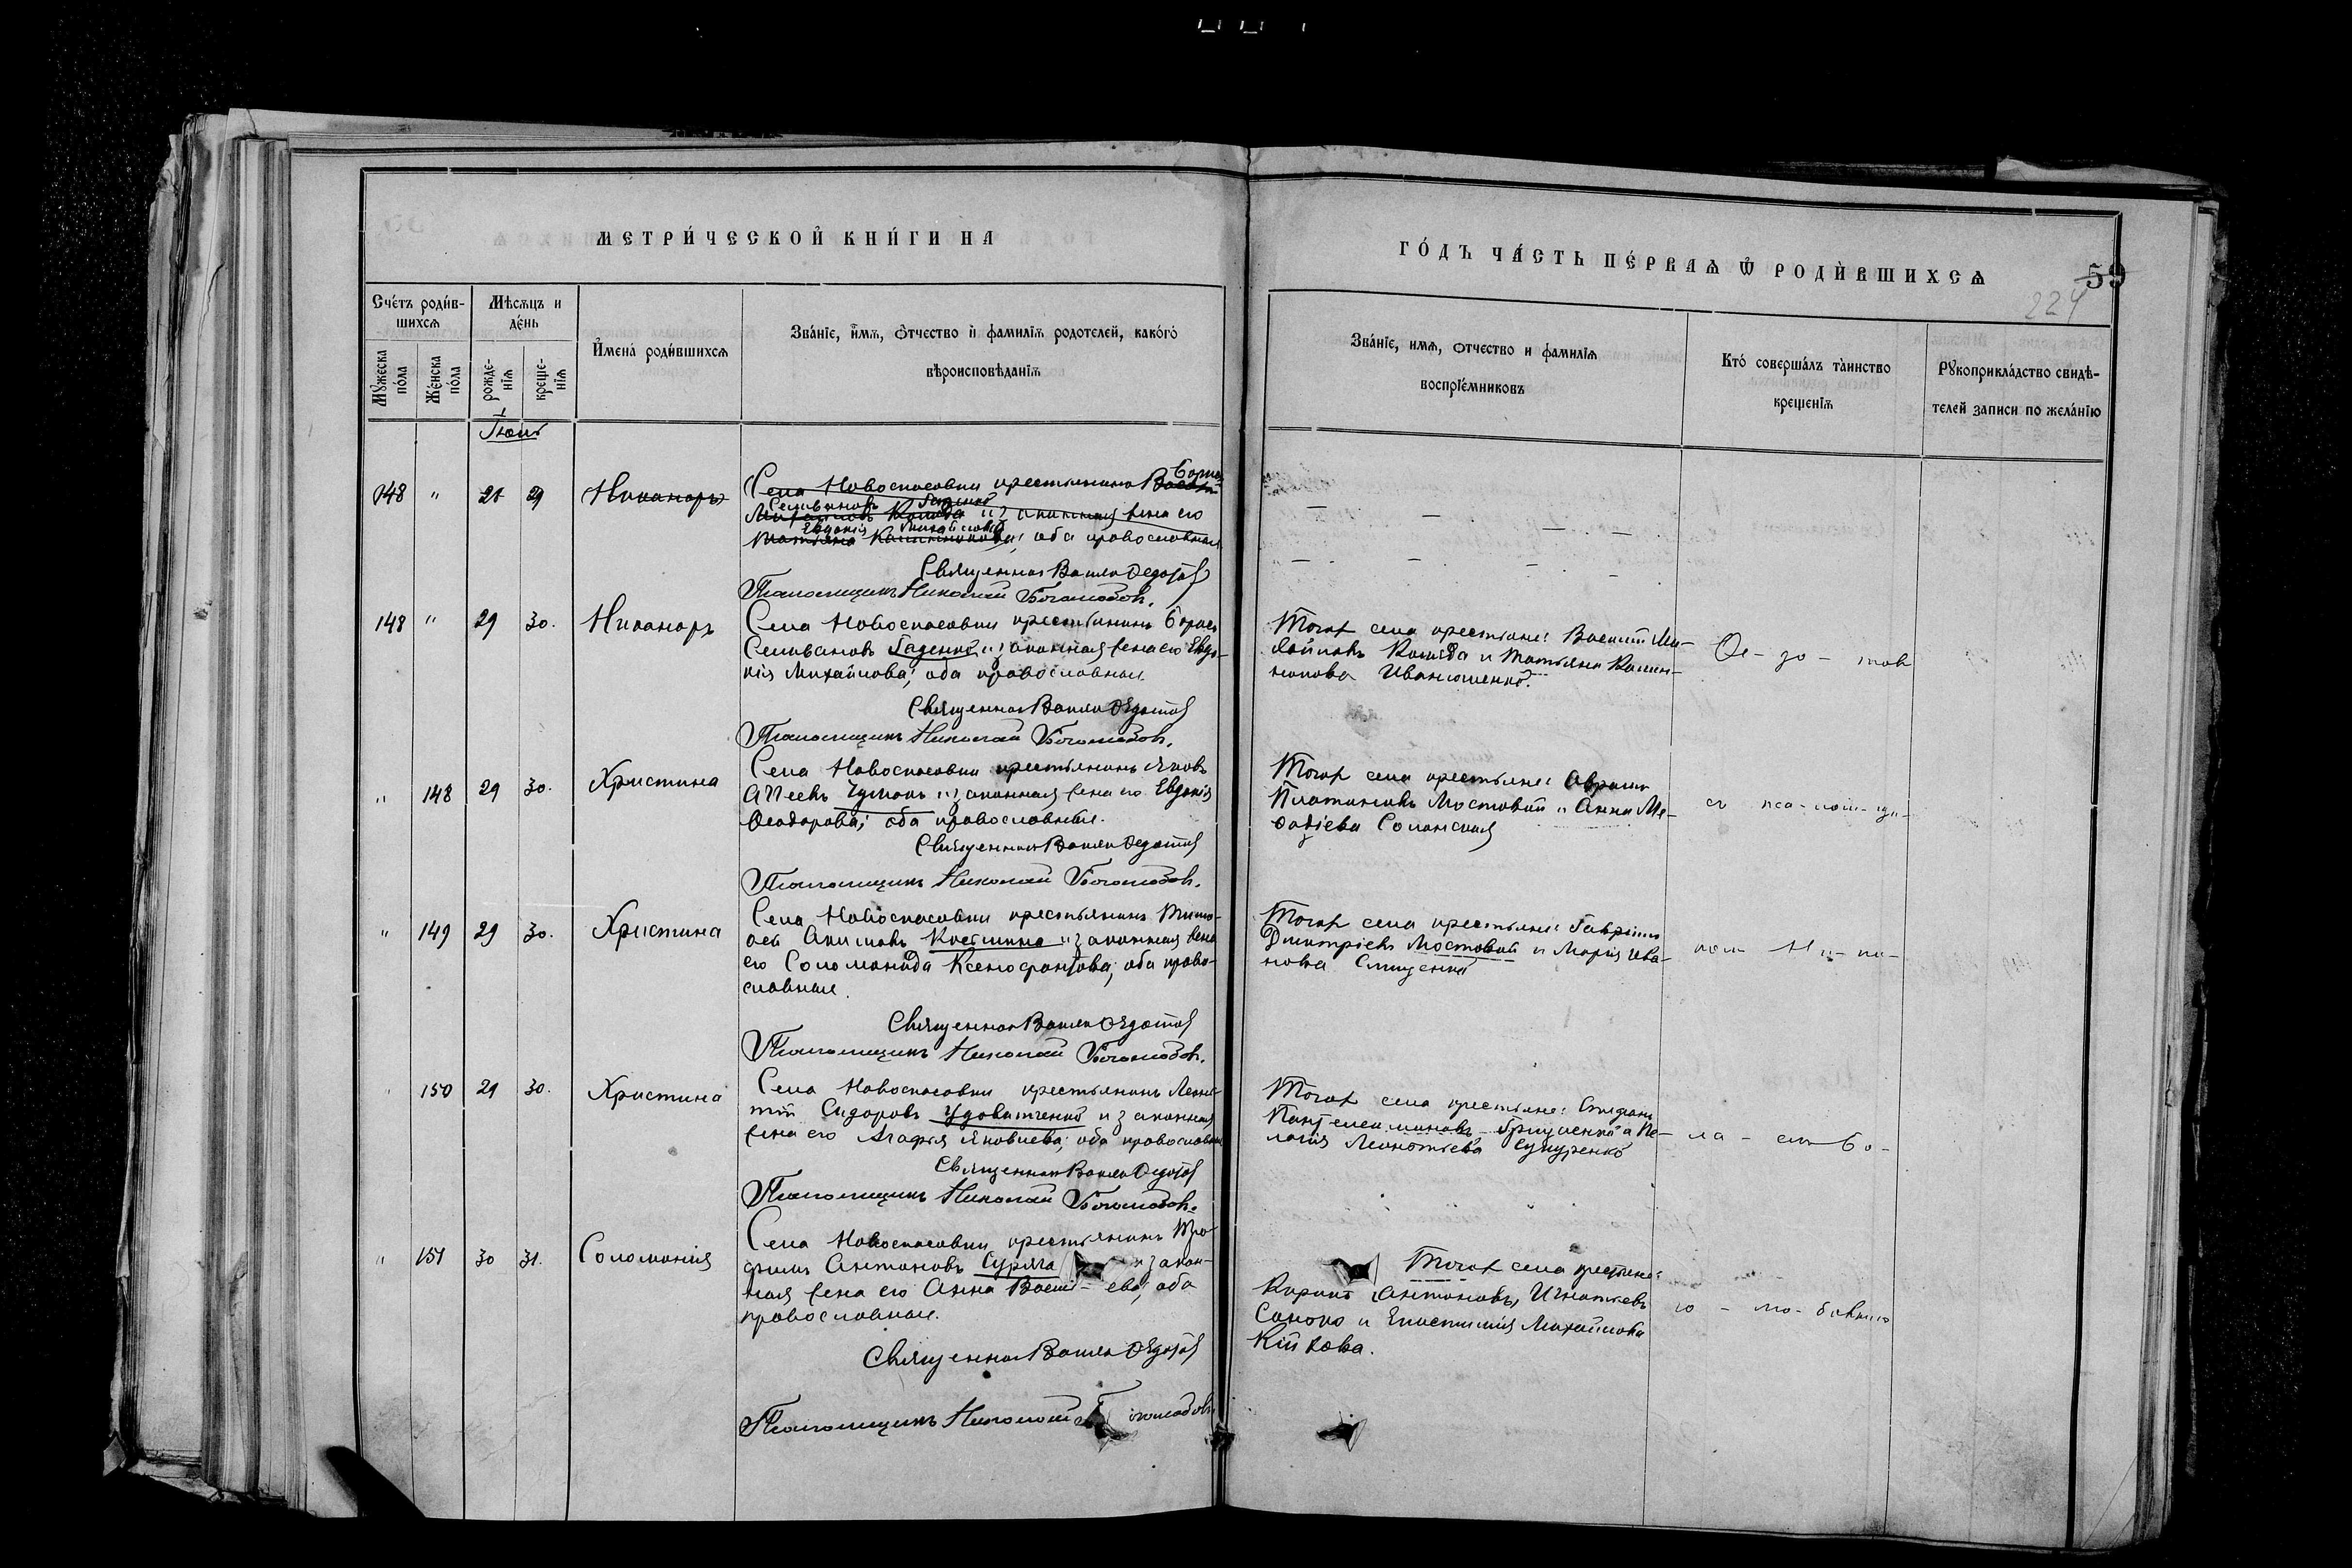 МЕТРИ́ЧЕСКОЙ КНИ́ГИ НА
ГО́ДЪ ЧА́СТЬ ПЕ́РВАѦ Ѿ РОДИ́ВШИХСѦ
59
224
Сче́тъ роди́в-
шихсѧ
Мѣсѧцъ и
де́нь
Мꙋжеска
по́ла
Же́нска
по́ла
рожде-
нїѧ
креще-
нїѧ
И҆мена́ роди́вшихсѧ
Зва́нїе, и҆́мѧ, ѻ҆́тчество и҆ фамилїѧ родотелей, како́гѡ
вѣроисповѣданїѧ
Зва́нїе, имѧ, ѻтчество и фамилїѧ
воспрїе́мниковъ
Кто́ соверша́лъ та̀инство
крещенїѧ
Рꙋкоприкла́дство свидѣ-
телей записи по жела́нїю
Іюль
148 " 21 29 Никаноръ
Села Новоспасовки крестьянинъ Борис
Селивановъ Гаденко
Михайловъ Коляда и законная жена его
Евдокія Михайлова
Татьяна оба православные
Священникъ Федотов
Псаломщикъ Николай Боголюбовъ.
148 " 29 30. Никаноръ
Села Новоспасовки крестьянинъ Борисъ
Селивановъ Гаденко и законная жена его Евдо-
кія Михайлова; оба православные
Священникъ Федотов
Псаломщикъ Николай Боголюбовъ.
Тогож села крестьяне: Василій Ми-
хайловъ Коляда и Татьяна Калин-
никова Иванющенко.
Ѳе - до - тов
" 148 29 30. Христина
Села Новоспасовки крестьянинъ Яковъ
Чумакъ и законная жена его Евдокія
Ѳеодорова; оба православные.
Священникъ Федотов
Псаломщикъ Николай Боголюбовъ.
Тогож села крестьяне: Аврамъ
Платоновъ Мостовой и Анна Ме-
ѳодіева
съ пса - лом - щи -
" 149 29 30. Христина
Села Новоспасовки крестьянинъ Тимо-
ѳей Акимовъ и законная жена
его Соломонида Ксенофонтова; оба право-
славные.
Священникъ Федотов
Псаломщикъ Николай Боголюбовъ.
Тогож села крестьяне: Гавріилъ
Дмитріевъ Мостовой и Марія Ива-
нова
ком Ни - ко -
150 29 30. Христина
Села Новоспасовки крестьянинъ Леон-
тій Сидоровъ Удовитченко и законная
жена его Агафія Яковлева; оба православные
Священникъ Федотов
Псаломщикъ Николай Боголюбовъ.
Тогож села крестьяне: Стефанъ
Пантелеимоновъ Гриценко и Пе-
лагія Леонтіева
ла - емъ Бо -
" 151 30 31. Соломонія
Села Новоспасовки крестьянинъ Тро-
фимъ Антоновъ Суряга и закон-
ная жена его Анна Васил - ева; оба
православные.
Священникъ Федотов
Псаломщикъ Николай Боголюбовъ
Тогож села крестьяне:
Антоновъ, Игнатьевъ
и Михайлова
Кійкова.
го - лю - бовымъ